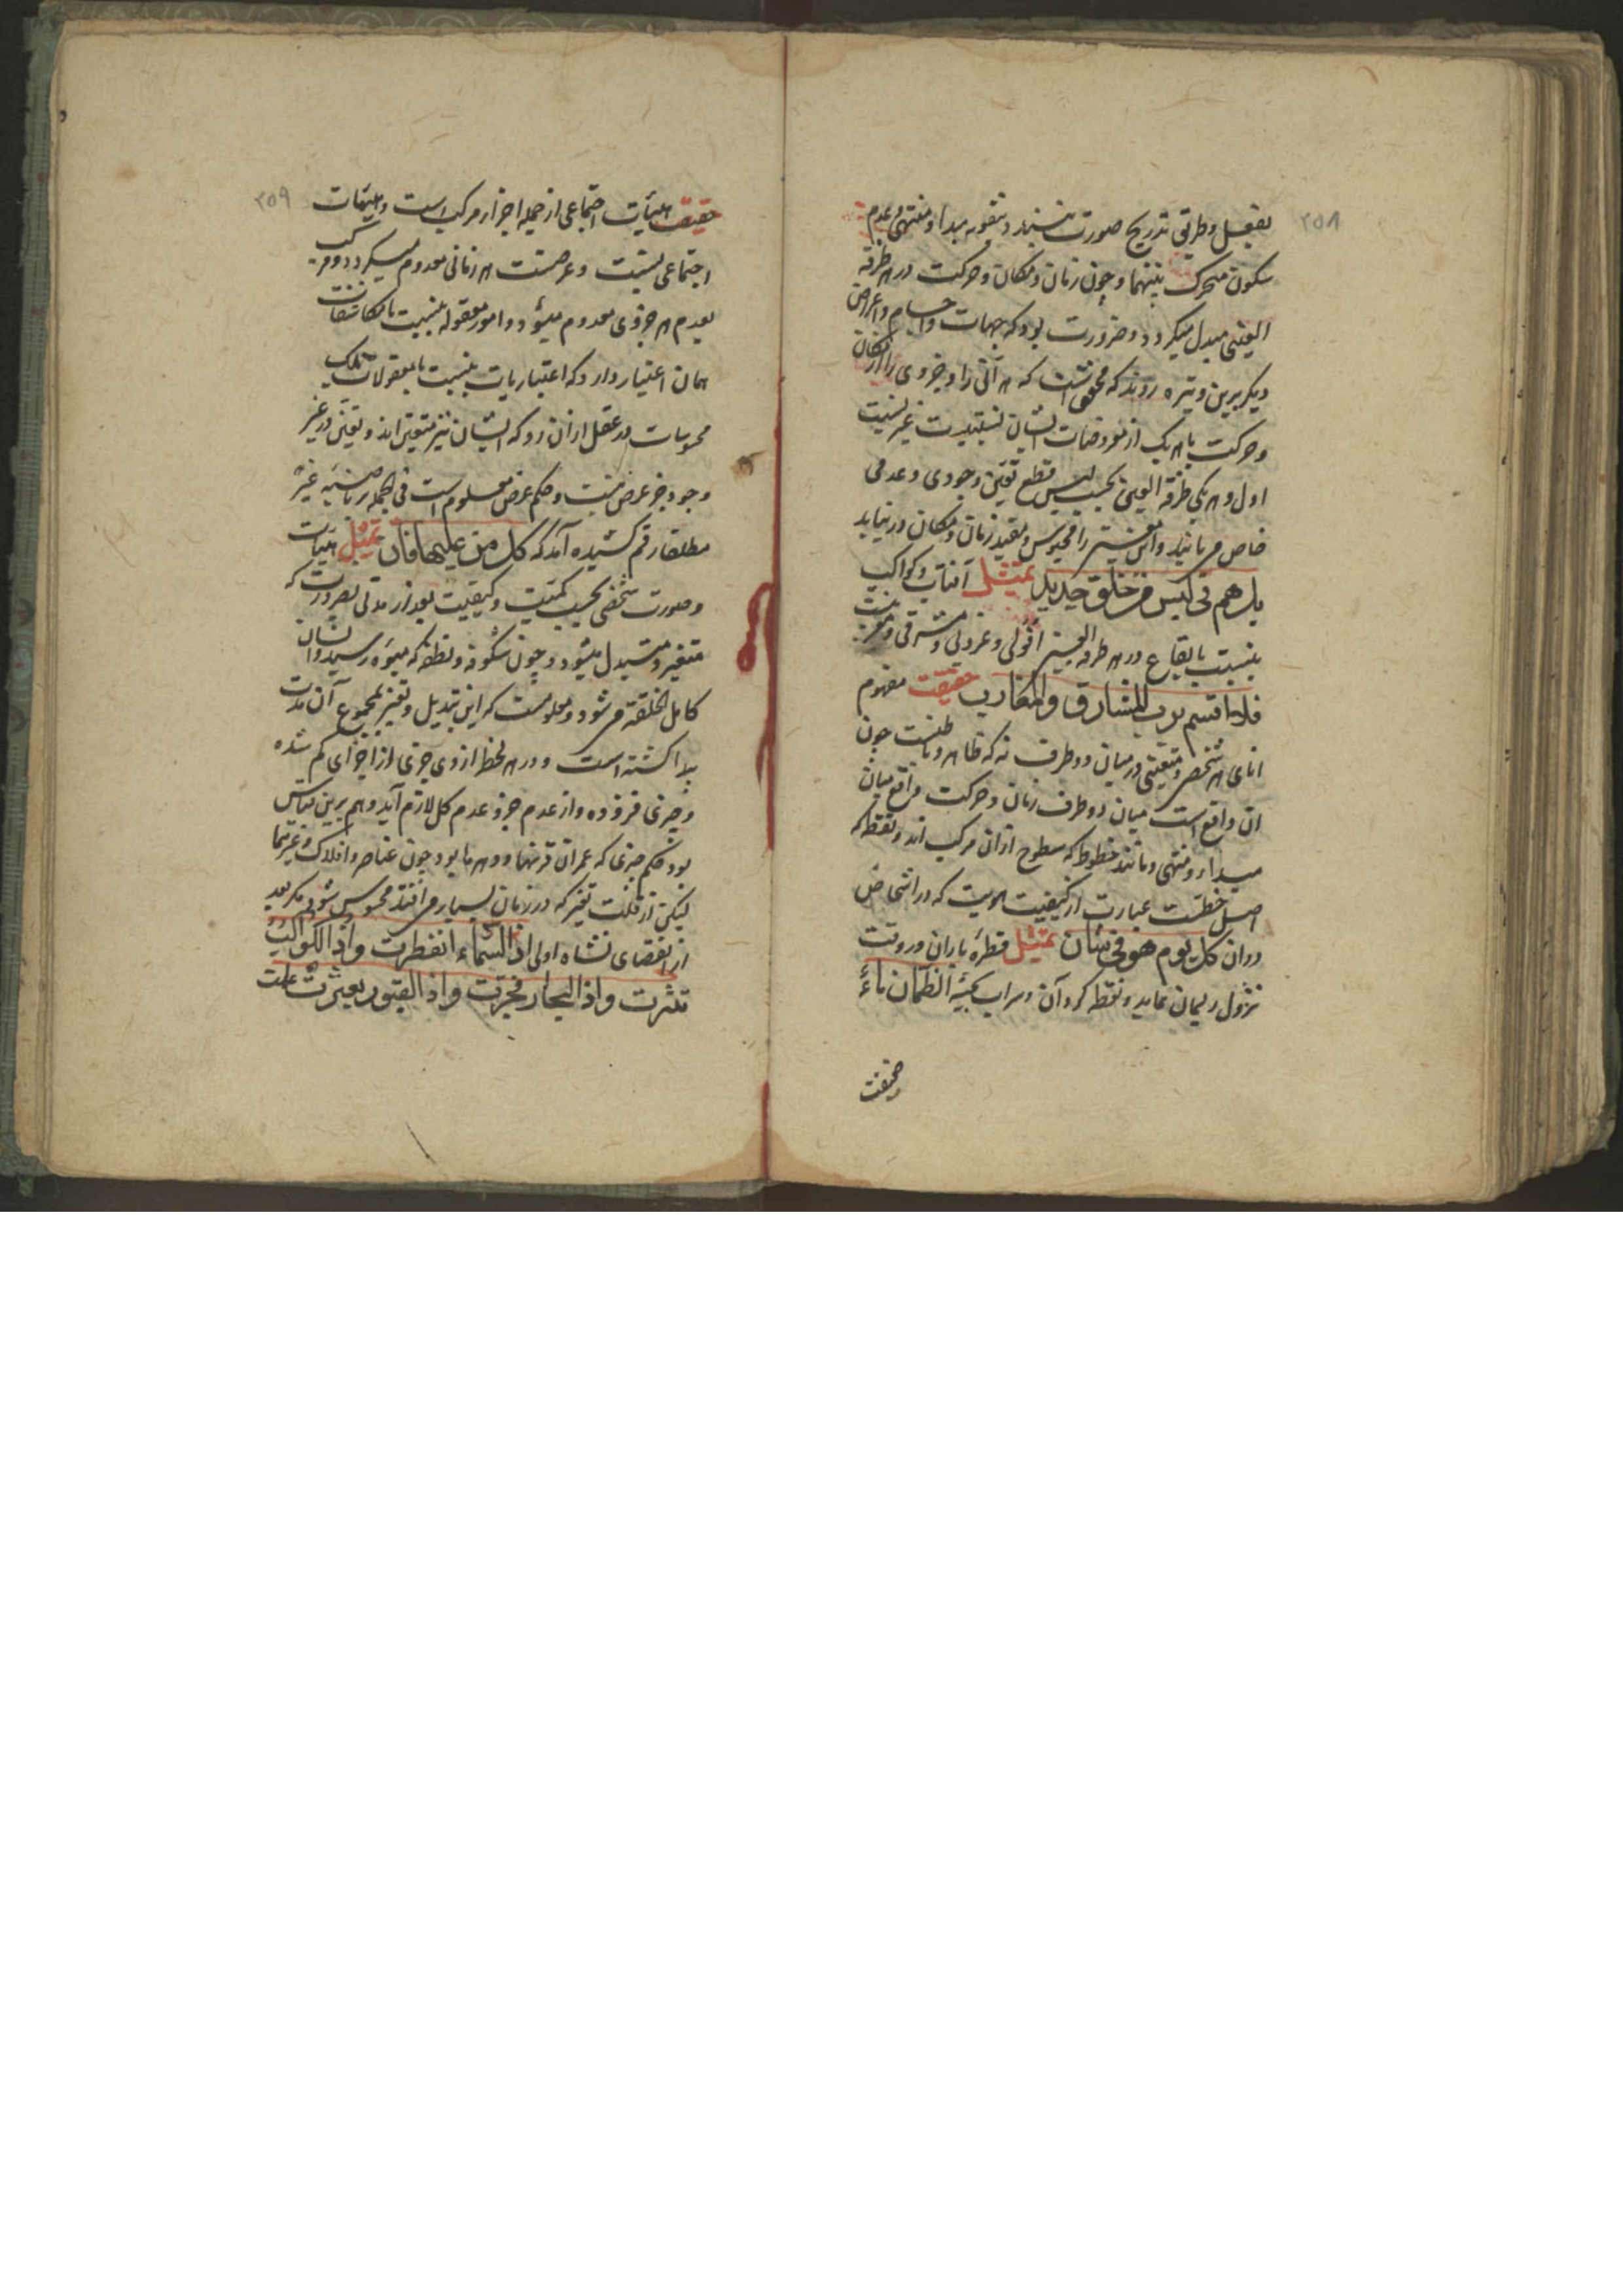 ۲۵۸
بفعل و طریق تدریج صورت نه بندد و بنقویه مبدا و منتهی و عدم
سکون متحرک بینهما و چون زمان و مکان و حرکت در هر طرفة
العینی مبدل میگردد و ضرورت بود که جهات و اجسام و اعراض
دیگر برین وتیره روند که محقق است که هر آنی را و جزوی را از مکان
و حرکت با هر یک از معروضات ایشان نسبتیست غیر نسبت
اول و هر یکی طرفة العین بحسب لبس و قطع تعین وجودی و عدمی
خاص می یابند و این معنی را محبوس و مقید زمان و مکان در نیابد
بل هم فی لبس من خلق جدید تمثیل آفتاب و کواکب
بنسبت با بقاع در هر طرفة العینی افولی و غروبی و مشرقی و مغربیست
فلا اقسم برب المشارق والمغارب حقیقت مفهوم
انای هر شخص و متعینی در میان دو طرف نه که ظاهر و باطنست چون
آن واقع است میان دو طرف زمان و حرکت واقع میان
مبداء و منتهی و مانند خطوط که سطوح از آن مرکب اند و نقطه که
اصل خطست عبارت از کیفیت هویت که در اشخاص
دوران کل یوم هو فی شان تمثیل قطره باران در وقت
نزول ریسمان نماید و نقطه گردان و سراب یحسبه الظمان ماءً
حقیقت
۲۵۹
حقیقت هیأت اجتماعی از جمله اجزاء مرکب است و هیئات
اجتماعی نسبت و عرضست هر زمانی معدوم میگردد و مرکب
بعدم هر جزوی معدوم میشود و امور معقوله بنسبت با مکاشفات
همان اعتبار دارد که اعتباریات بنسبت با معقولات بلک
محسوسات در عقل از آن رو که ایشان نیز متعین اند و تعین در غیر
وجود جز عرض نیست و حکم عرض معلوم است فی الجمله بر ناصیه غیر
مطلقا رقم کشیده آمد که کل من علیها فان تمثیل هیات
و صورت شخصی بحسب کمیت و کیفیت بعد از مدتی بضرورت که
متغیر و متبدل میشود و چون شکوفه و نطفه که میوه رسیده و انسان
کامل الخلقه می شود و معلومست که این تبدیل و تغیر بمجموع آن مدت
پیدا گشته است و در هر لحظه از وی چیزی از اجزای کم شده
و چیزی فزوده و از عدم جزو عدم کل لازم آید و هم برین قیاس
بود حکم چیزی که عمر آن قرنها و دهرها بود چون عناصر و افلاک و غیرهما
لیکن از قلت تغیر که در زمان بسیار می افتد محسوس نشود مگر بعد
از انقضای نشاه اولی اذا السماء انفطرت و اذا الکواکب
نتثرت و اذا البحار فجرت و اذا القبور بعثرت علمت